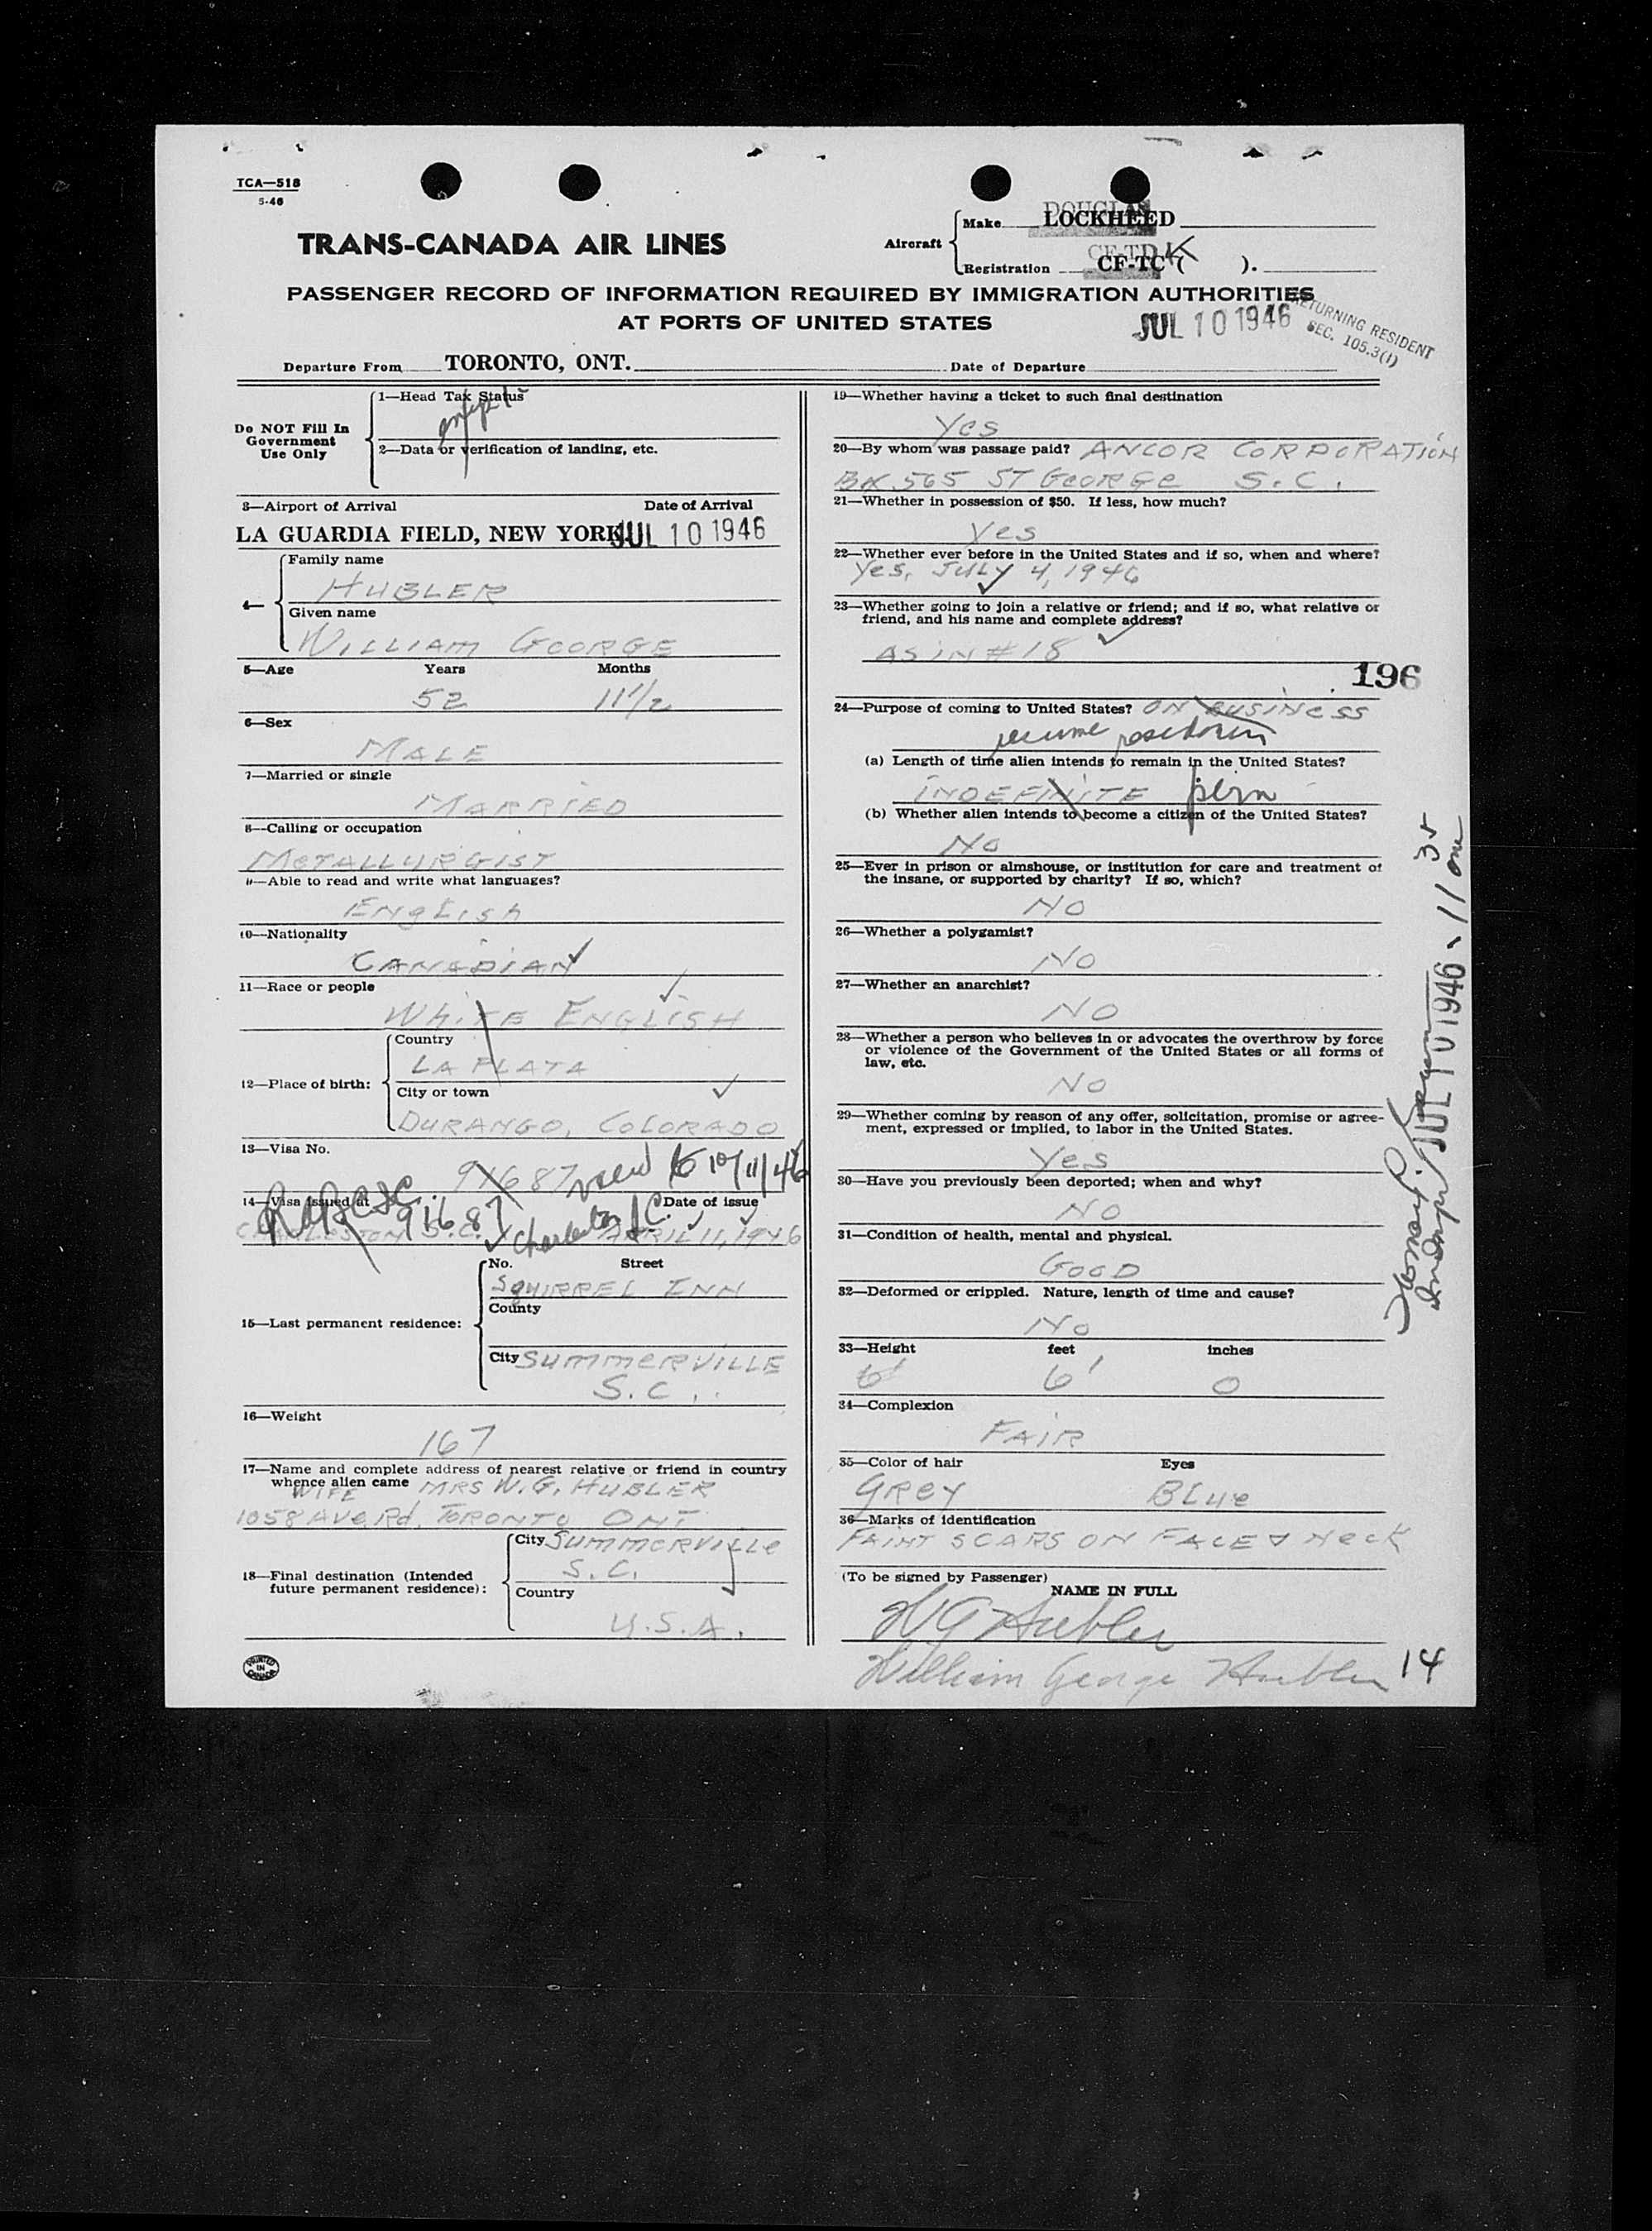 TCA—518
5-46
DOUGLAS
Make LOCKHEED
TRANS-CANADA AIR LINES
Aircraft
CF-TDK
Registration CF-TC ( ).
PASSENGER RECORD OF INFORMATION REQUIRED BY IMMIGRATION AUTHORITIES
AT PORTS OF UNITED STATES
JUL 10 1946
RETURNING RESIDENT
SEC. 105.3(1)
Departure From TORONTO, ONT.
Date of Departure
Do NOT Fill In
Government
Use Only
1—Head Tax Status
2—Data or verification of landing, etc.
3—Airport of Arrival Date of Arrival
LA GUARDIA FIELD, NEW YORK JUL 10 1946
4—
Family name
HUBLER
Given name
WILLIAM GEORGE
5—Age Years Months
52 11 1/2
6—Sex
MALE
7—Married or single
MARRIED
8—Calling or occupation
METALLURGIST
9—Able to read and write what languages?
ENGLISH
10—Nationality
CANADIAN
11—Race or people
WHITE ENGLISH
12—Place of birth:
Country
LA PLATA
City or town
DURANGO, COLORADO
13—Visa No.
91687 10/11/46
14—Visa issued at Date of issue
91687 Charleston S.C.
CHARLESTON S.C. APRIL 11, 1946
15—Last permanent residence:
No. Street
SQUIRREL INN
County
City SUMMERVILLE
S.C.
16—Weight
167
17—Name and complete address of nearest relative or friend in country
whence alien came MRS W. G. HUBLER
WIFE
1058 AVE. Rd. TORONTO ONT
18—Final destination (Intended
future permanent residence):
City SUMMERVILLE
S.C.
Country
U.S.A.
PRINTED
IN
CANADA
19—Whether having a ticket to such final destination
Yes
20—By whom was passage paid? ANCOR CORPORATION
BX 565 ST GEORGE S.C.
21—Whether in possession of $50. If less, how much?
Yes
22—Whether ever before in the United States and if so, when and where?
Yes, JULY 4, 1946
23—Whether going to join a relative or friend; and if so, what relative or
friend, and his name and complete address?
AS IN # 18
196
24—Purpose of coming to United States? ON BUSINESS
resume residence
(a) Length of time alien intends to remain in the United States?
INDEFINITE perm
(b) Whether alien intends to become a citizen of the United States?
No
25—Ever in prison or almshouse, or institution for care and treatment of
the insane, or supported by charity? If so, which?
NO
26—Whether a polygamist?
NO
27—Whether an anarchist?
NO
28—Whether a person who believes in or advocates the overthrow by force
or violence of the Government of the United States or all forms of
law, etc.
NO
29—Whether coming by reason of any offer, solicitation, promise or agree-
ment, expressed or implied, to labor in the United States.
Yes
30—Have you previously been deported; when and why?
NO
31—Condition of health, mental and physical.
GOOD
32—Deformed or crippled. Nature, length of time and cause?
No
33—Height feet inches
6' 6' 0
34—Complexion
FAIR
35—Color of hair Eyes
GREY BLUE
36—Marks of identification
FAINT SCARS ON FACE & NECK
(To be signed by Passenger)
NAME IN FULL
W G Hubler
William George Hubler
14
JUL 10 1946